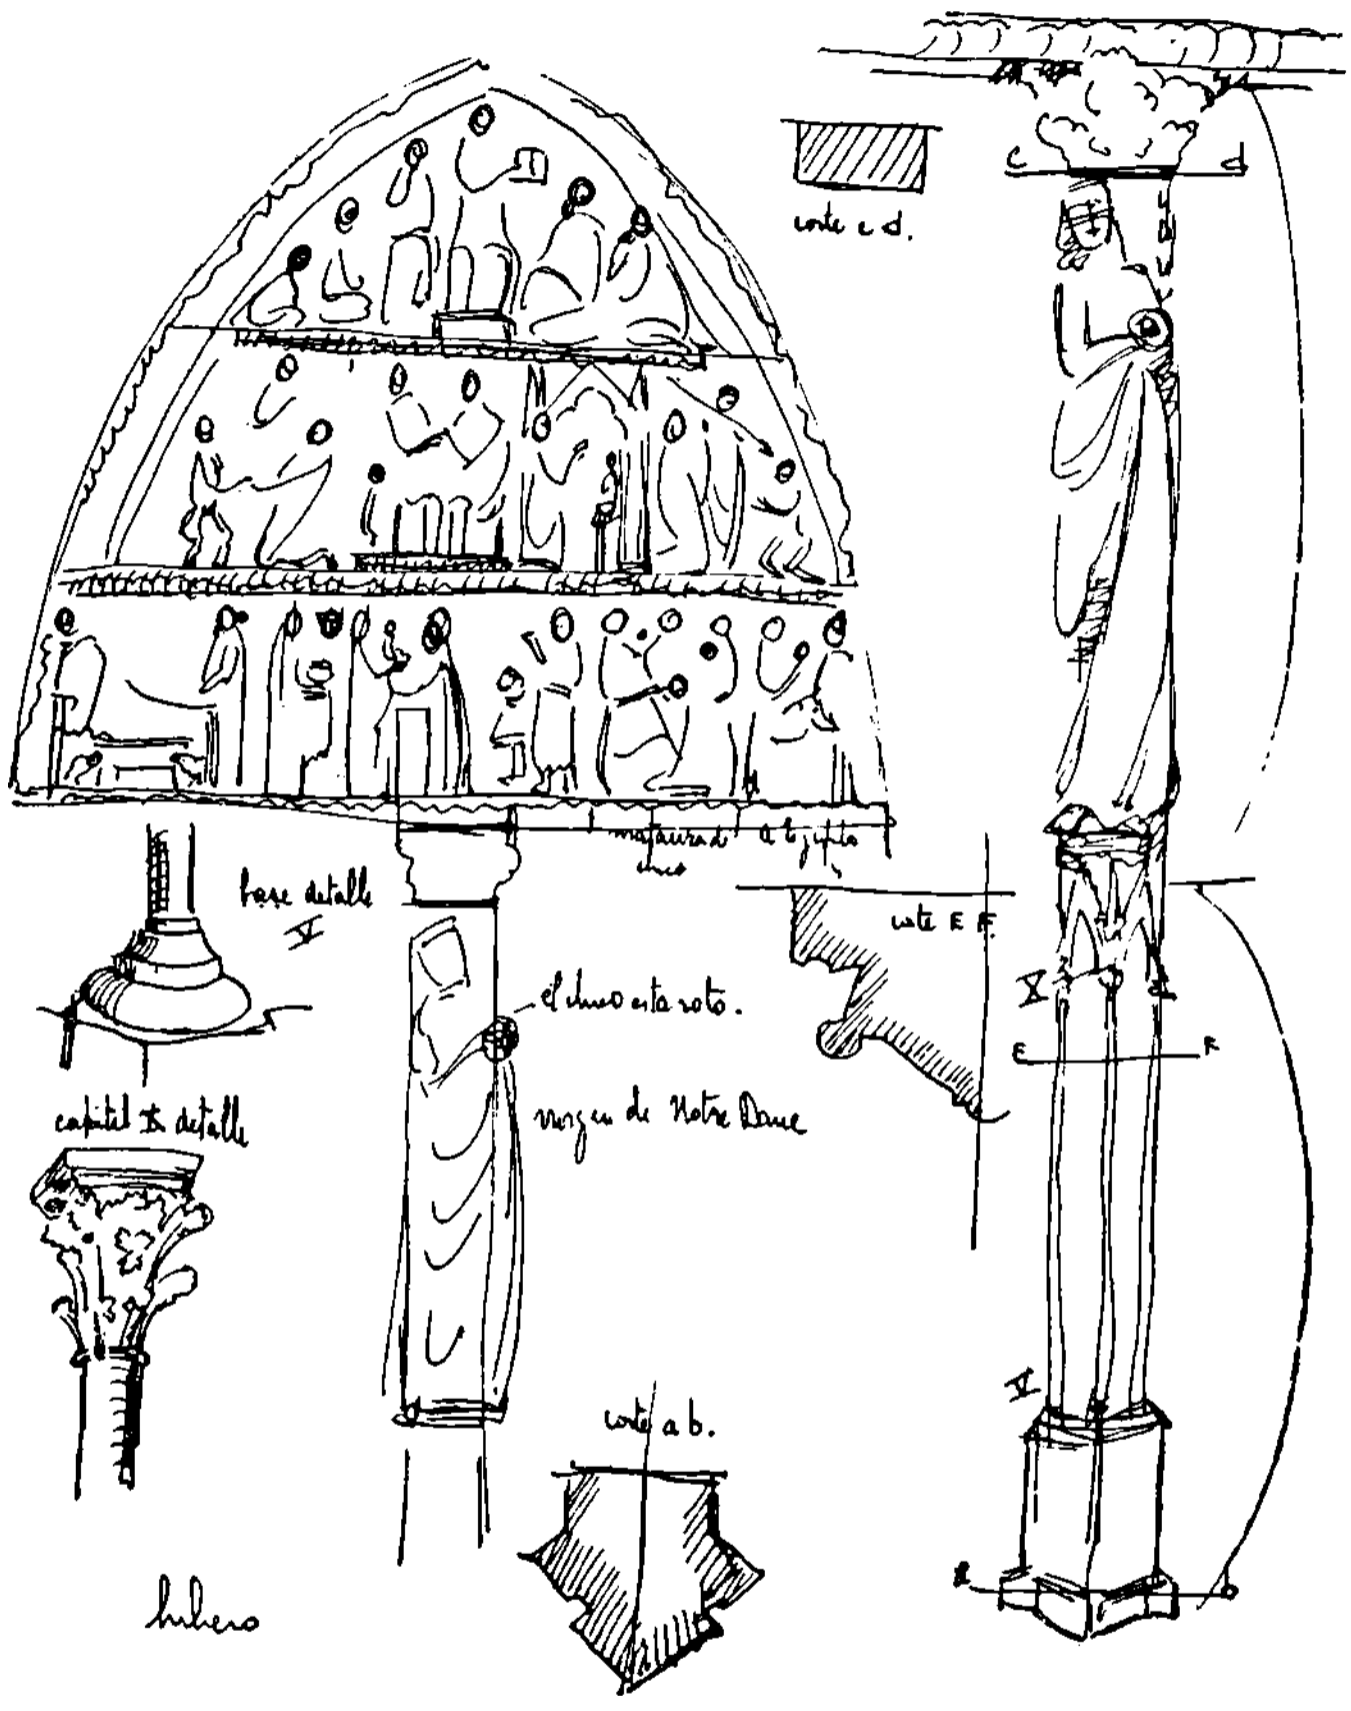 c d
corte c d.
base detalle
V
corte E F.
el chico esta roto.
X
E F
capitel X detalle
virgen de Notre Dame
V
corte a b.